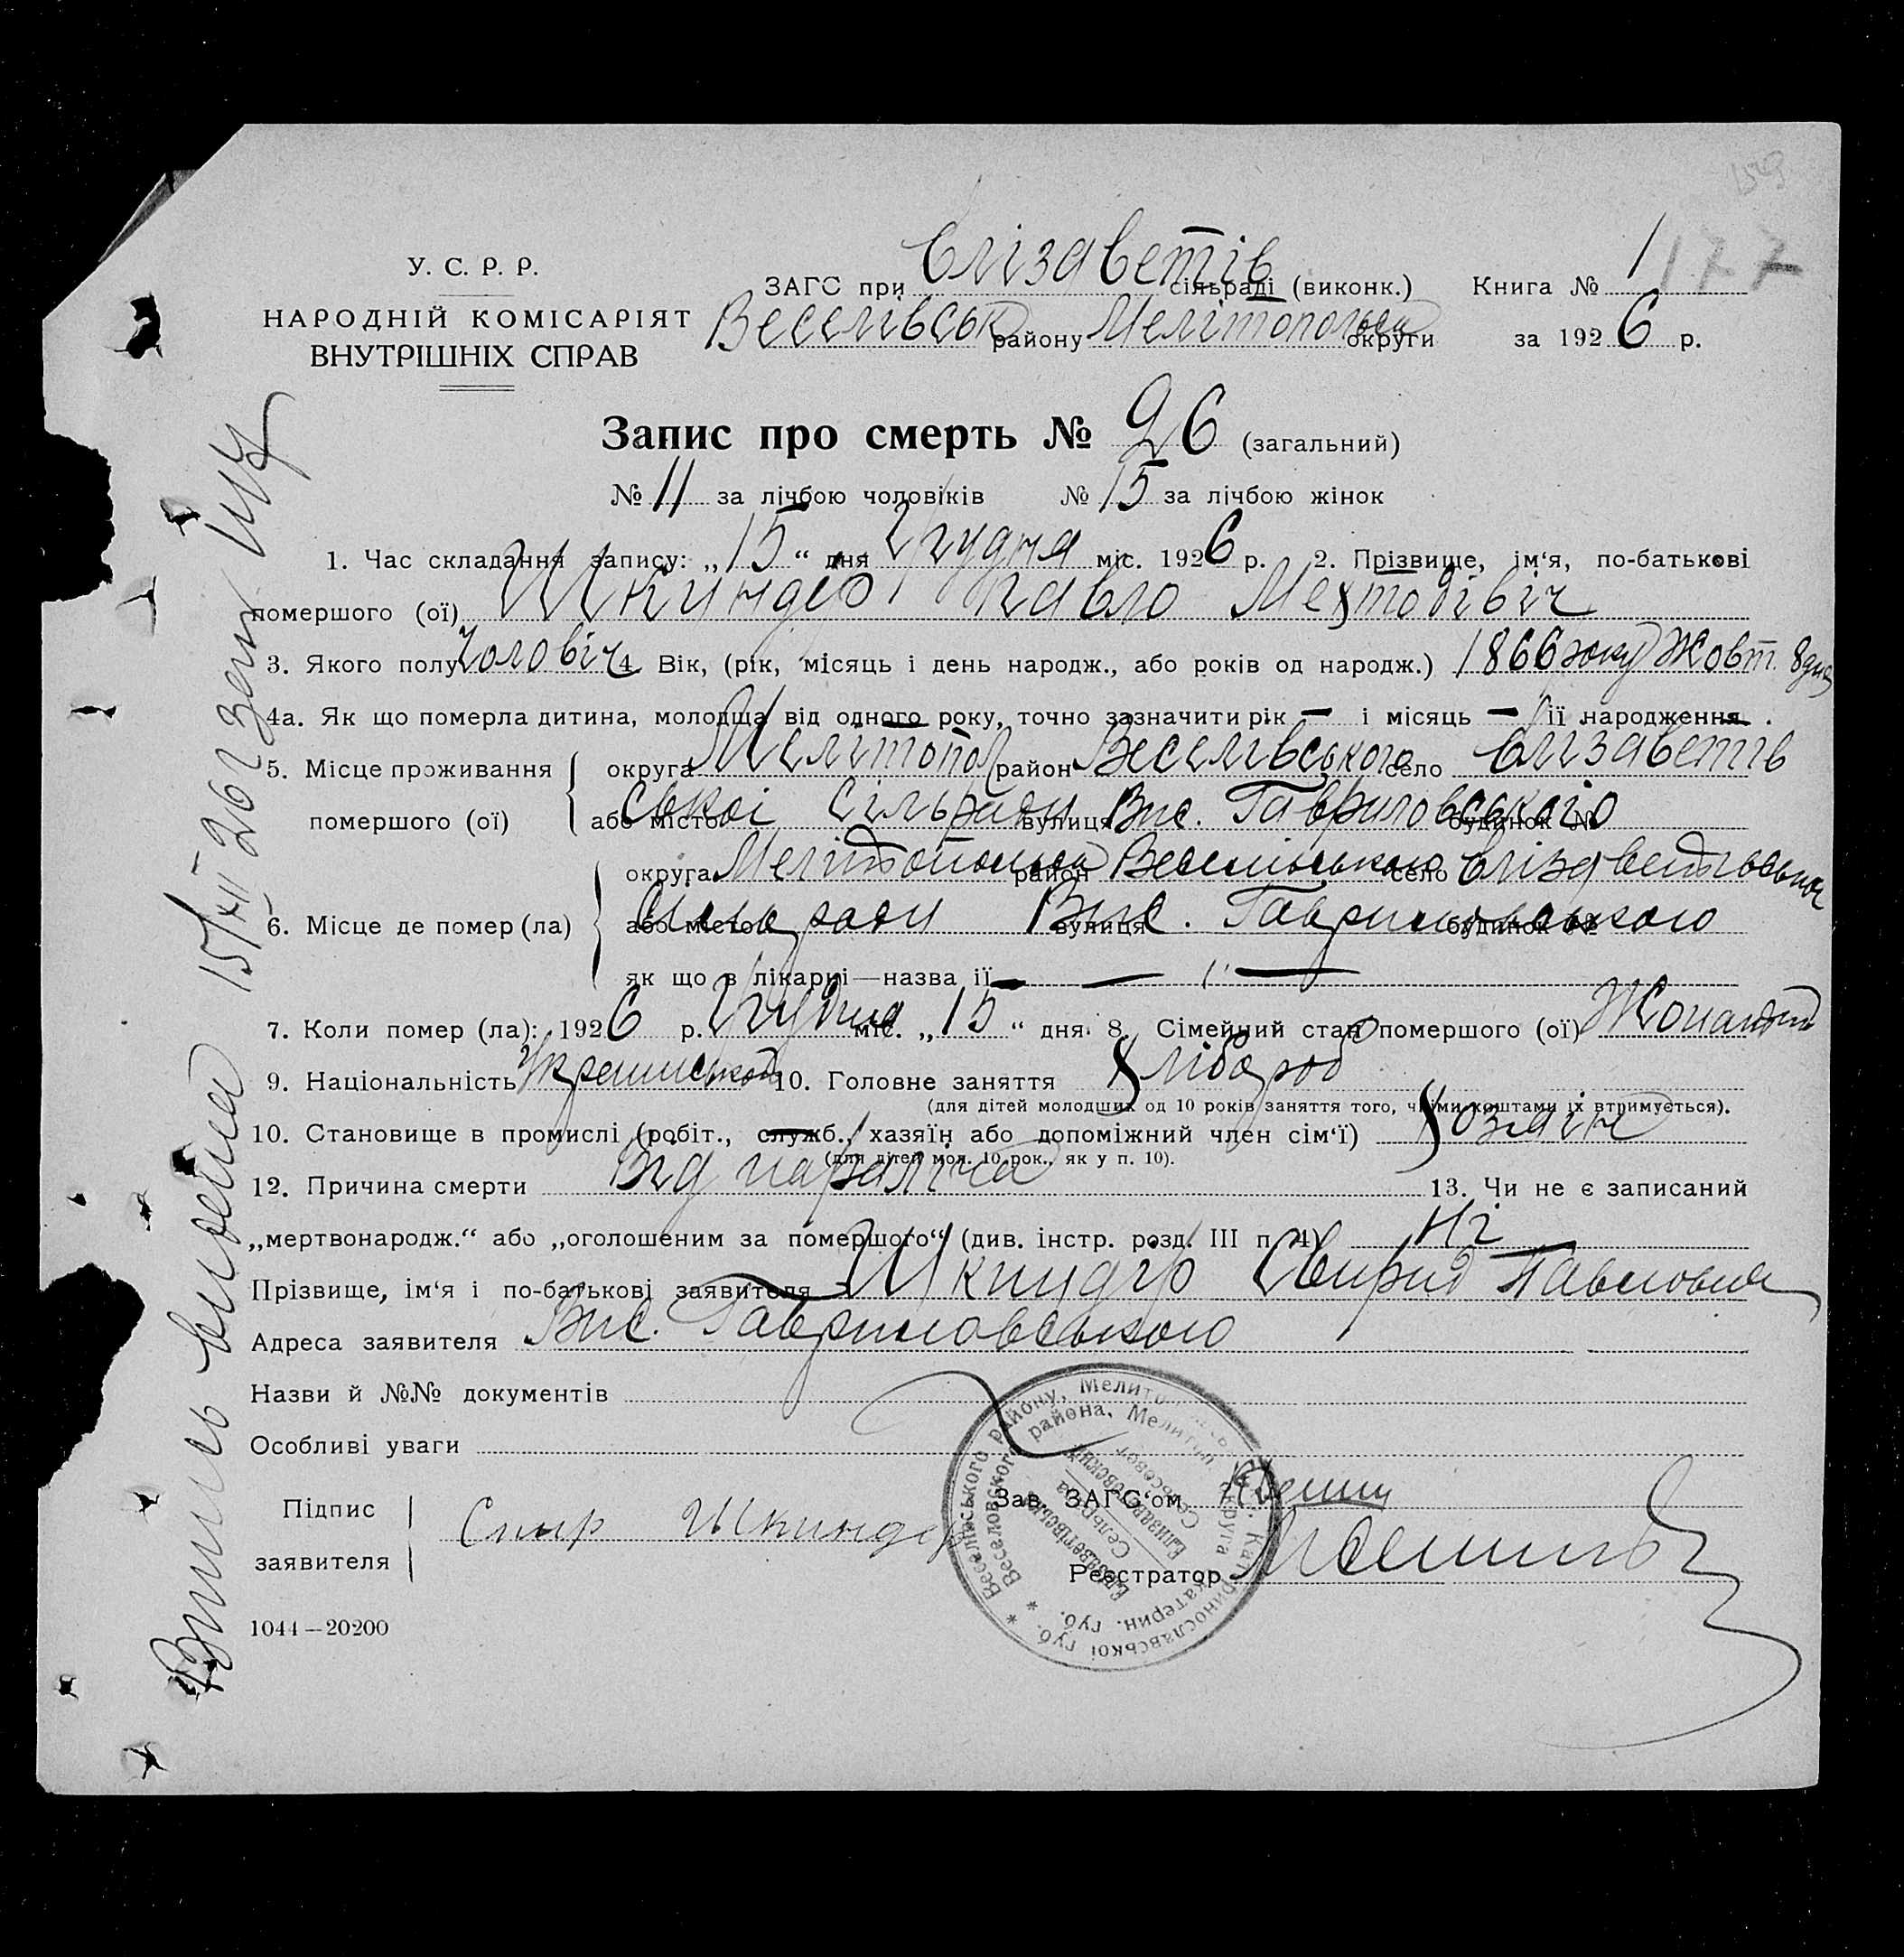 159
1
177
У. С. Р. Р.
НАРОДНІЙ КОМІСАРІЯТ
ВНУТРІШНІХ СПРАВ
ЗАГС при Єлізаветів сільраді (виконк.) Книга №
Веселівськ району Мелітопольськ округи за 1926 р.
Запис про смерть № 26 (загальний)
№ 11 за лічбою чоловіків № 15 за лічбою жінок
1. Час складання запису: „15“ дня Грудня міс. 1926 р. 2. Прізвище, ім‘я, по-батькові
помершого (ої) Шкиндер Павло Мехтодівіч
3. Якого полу Чоловіч 4. Вік, (рік, місяць і день народж., або років од народж.) 1866 року Жовт. 8 дня
4а. Як що померла дитина, молодща від одного року, точно зазначити рік — і місяць — її народження — .
5. Місце проживання округа Мелітопол район Веселівського село Єлізаветів
помершого (ої) або місто ської сільради вулиця Вис. Гавриловського будинок №
округа Мелітопольськ район Веселівського село Єлізаветовської
6. Місце де помер (ла) або місто Сільради вулиця Вис. Гавриловського будинок №
як що в лікарні—назва її — — „ —
7. Коли помер (ла): 1926 р. Грудня міс. „15“ дня. 8. Сімейний стан помершого (ої) Жонатий
9. Національність Українськой 10. Головне заняття Хлібороб
(для дітей молодших од 10 років заняття того, чиїми коштами їх втримується).
10. Становище в промислі (робіт., служб., хазяїн або допоміжний член сім‘ї) Хозяін
(для дітей мол. 10 рок., як у п. 10).
12. Причина смерти Від параліча 13. Чи не є записаний
„мертвонародж.“ або „оголошеним за помершого“ (див. інстр. розд. III п. 4) Ні
Прізвище, ім‘я і по-батькові заявителя Шкиндер Свирид Павловіч
Адреса заявителя Вис. Гавриловського
Назви й №№ документів
Особливі уваги
Підпис
заявителя
Спир Шкиндер
Зав. ЗАГС‘ом
Реєстратор
Веселівського району, Мелитоп. округи Катеринославської губ.
Веселовского района, Мелитоп. округа Екатерин. губ.
Єлизаветівська Сельрада
Елизаветовский Сельсовет
1044—20200
15/XII 26 г